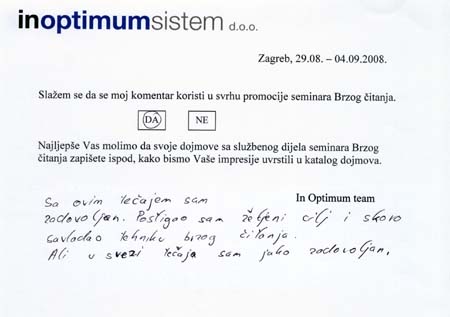 inoptimumsistem d.o.o.
Zagreb, 29.08. – 04.09.2008.
Slažem se da se moj komentar koristi u svrhu promocije seminara Brzog čitanja.
DA NE
Najljepše Vas molimo da svoje dojmove sa službenog dijela seminara Brzog
čitanja zapišete ispod, kako bismo Vaše impresije uvrstili u katalog dojmova.
In Optimum team
Sa ovim tečajem sam
zadovoljan. Postigao sam željeni cilj i skoro
savladao tehniku brzog čitanja.
Ali u svezi tečaja sam jako zadovoljan.